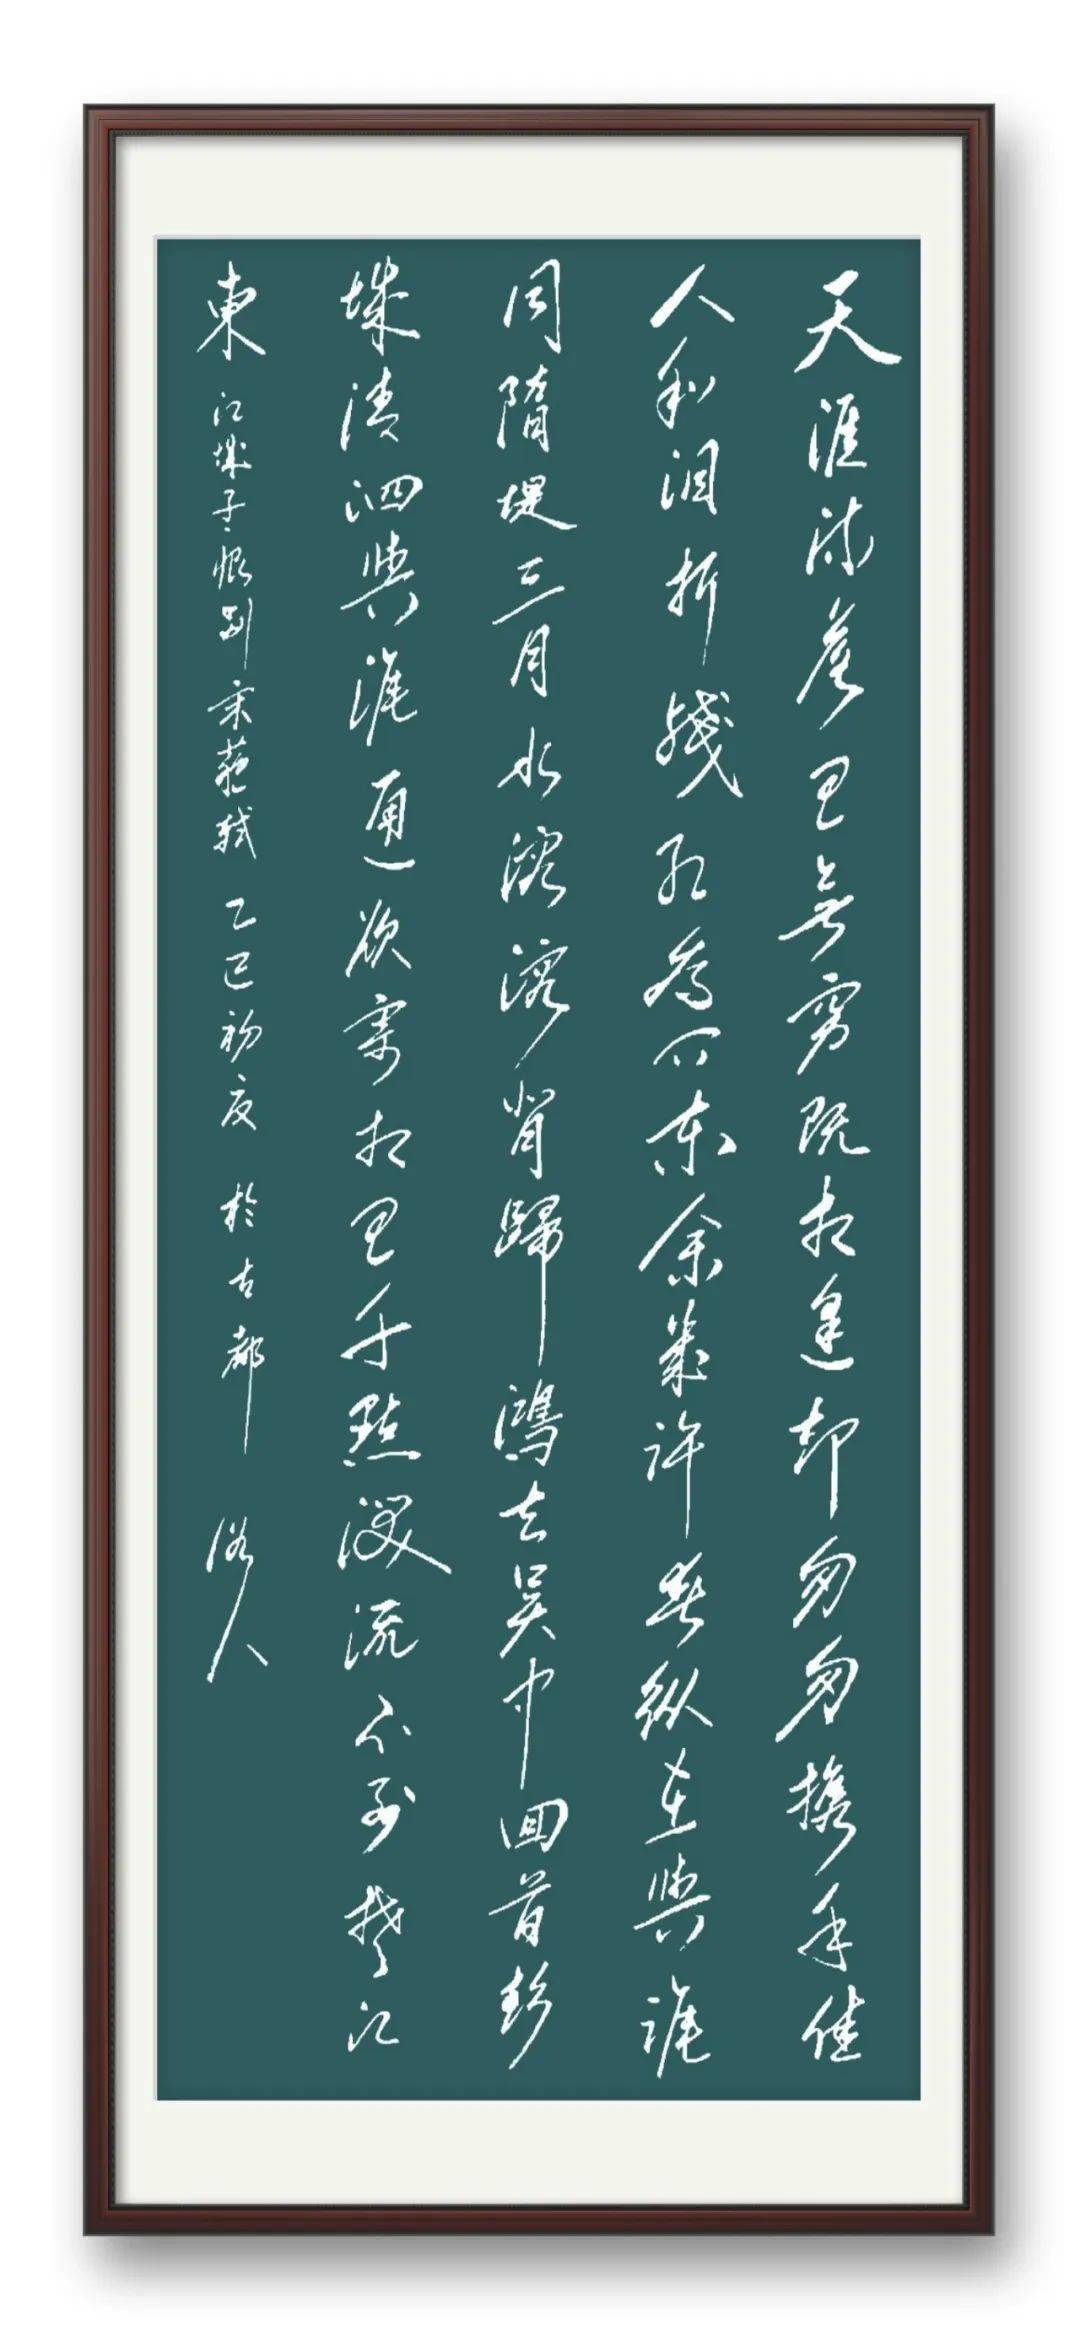 天涯流落思無窮既相逢却匆匆携手佳
人和泪折殘红為问東余幾許春纵在與誰
同隋堤三月水溶溶背歸鴻去吴中回首彭
城清泗與淮通欲寄相思千點淚流不到楚江
東 江城子·恨别 宋蘇軾 乙巳初夏 於古都 俗人